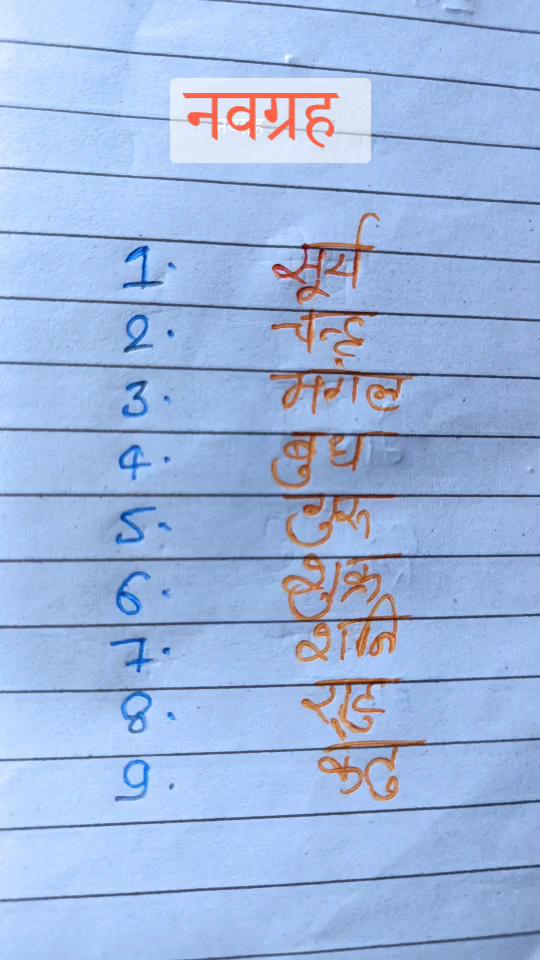 नवग्रह
1. सूर्य
2. चन्द्र
3. मगंल
4. बुध
5. गुरू
6. शुक्र
7. शनि
8. राहु
9.